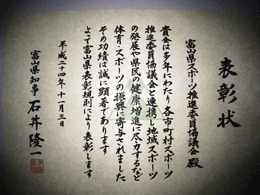 表彰状
富山県スポーツ推進委員協議会 殿
貴会は多年にわたり各市町村スポーツ
推進委員協議会と連携し地域スポーツ
の発展や県民の健康増進に尽力するなど
体育・スポーツの振興に寄与されました
その功績は誠に顕著であります
よって富山県表彰規則により表彰します
平成二十四年十一月三日
富山県知事 石井隆一